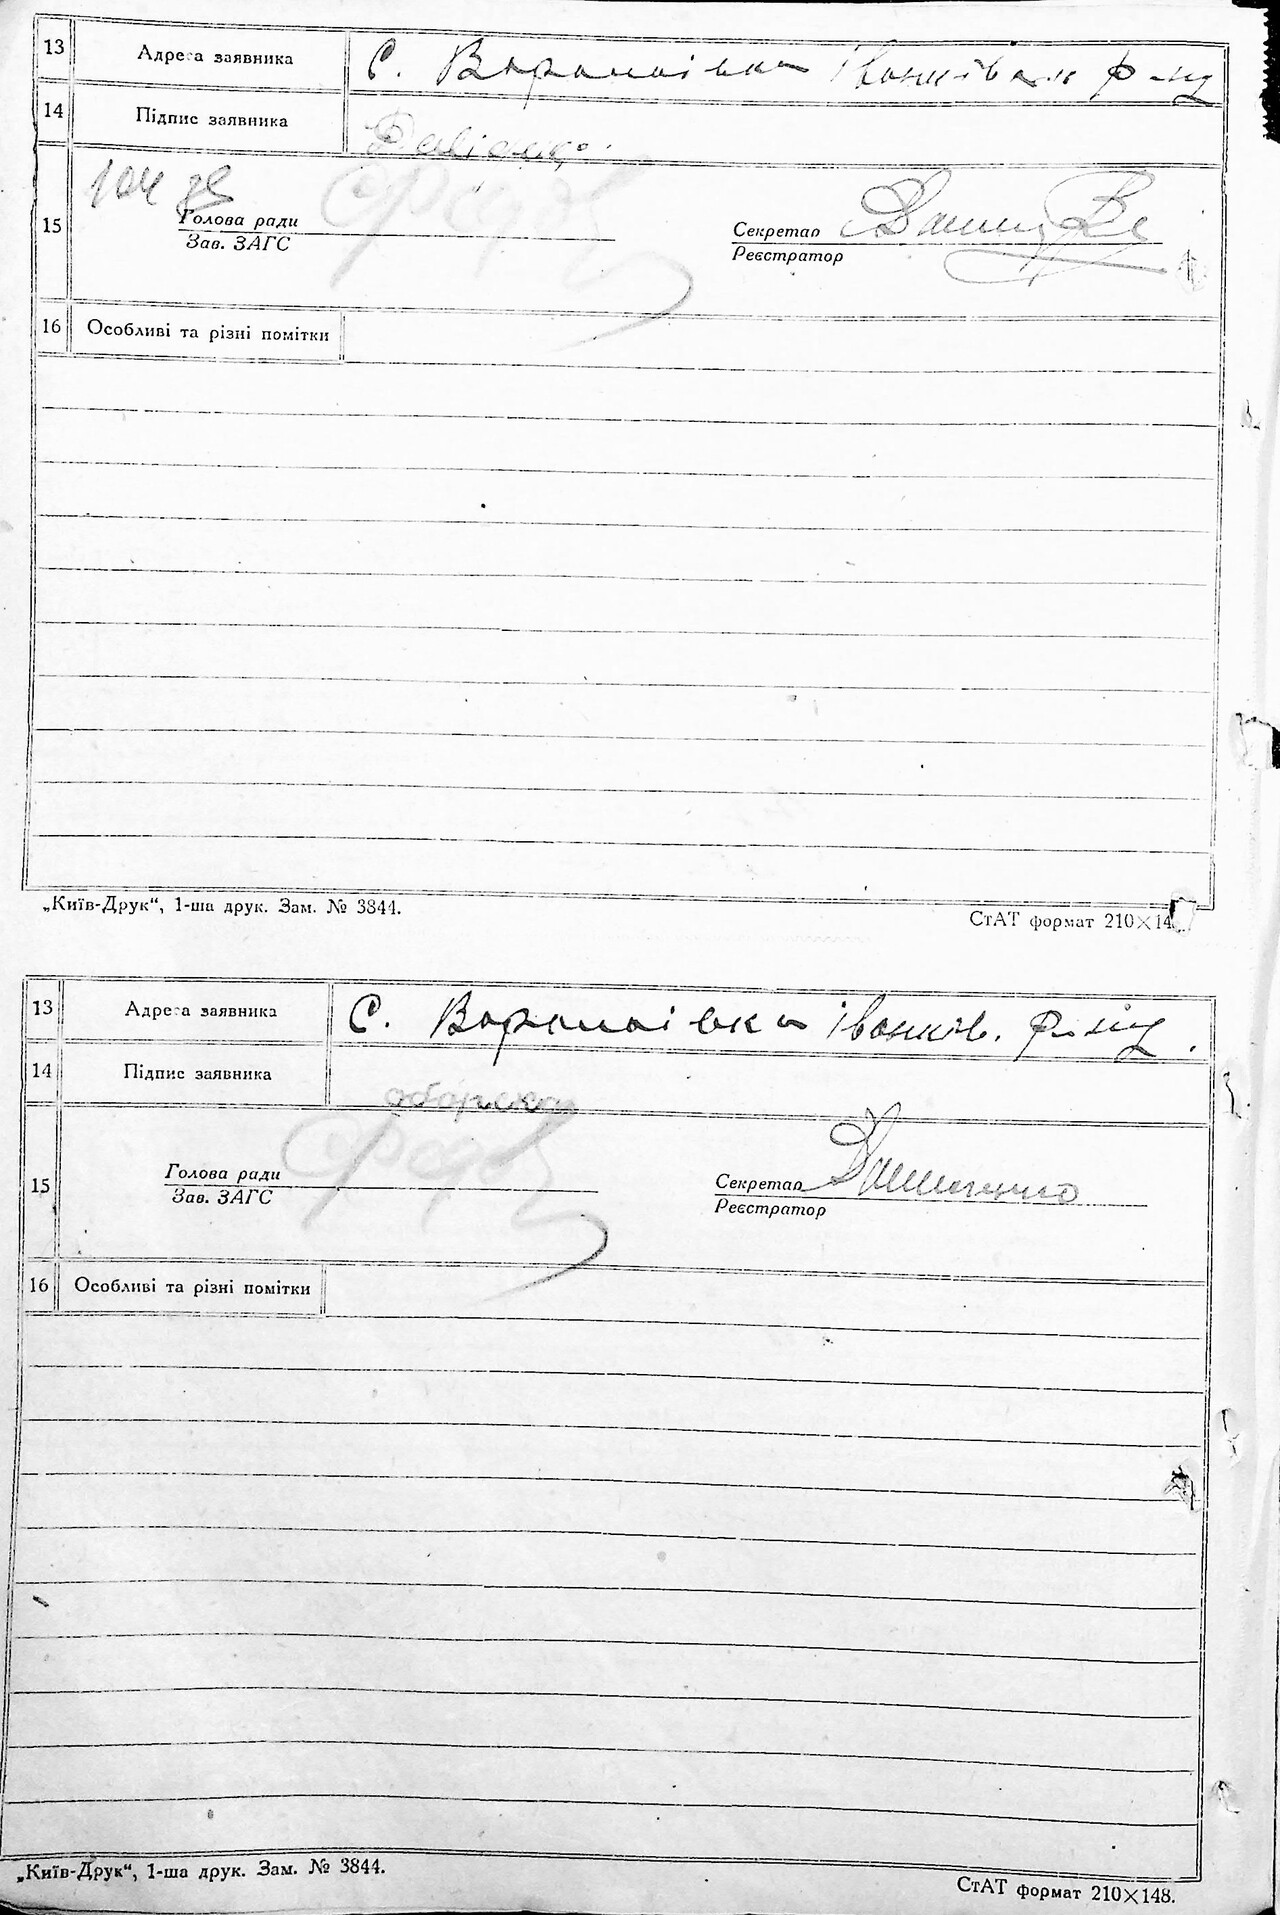 13 Адреса заявника С. Воропаївка Іванківськ р-ну
14 Підпис заявника
15 Голова ради Секретар
Зав. ЗАГС Реєстратор
16 Особливі та різні помітки
„Київ-Друк“, 1-ша друк. Зам. № 3844. СтАТ формат 210×14
13 Адреса заявника С. Воропаївка Іванків. р-ну.
14 Підпис заявника
15 Голова ради Секретар
Зав. ЗАГС Реєстратор
16 Особливі та різні помітки
„Київ-Друк“, 1-ша друк. Зам. № 3844. СтАТ формат 210×148.